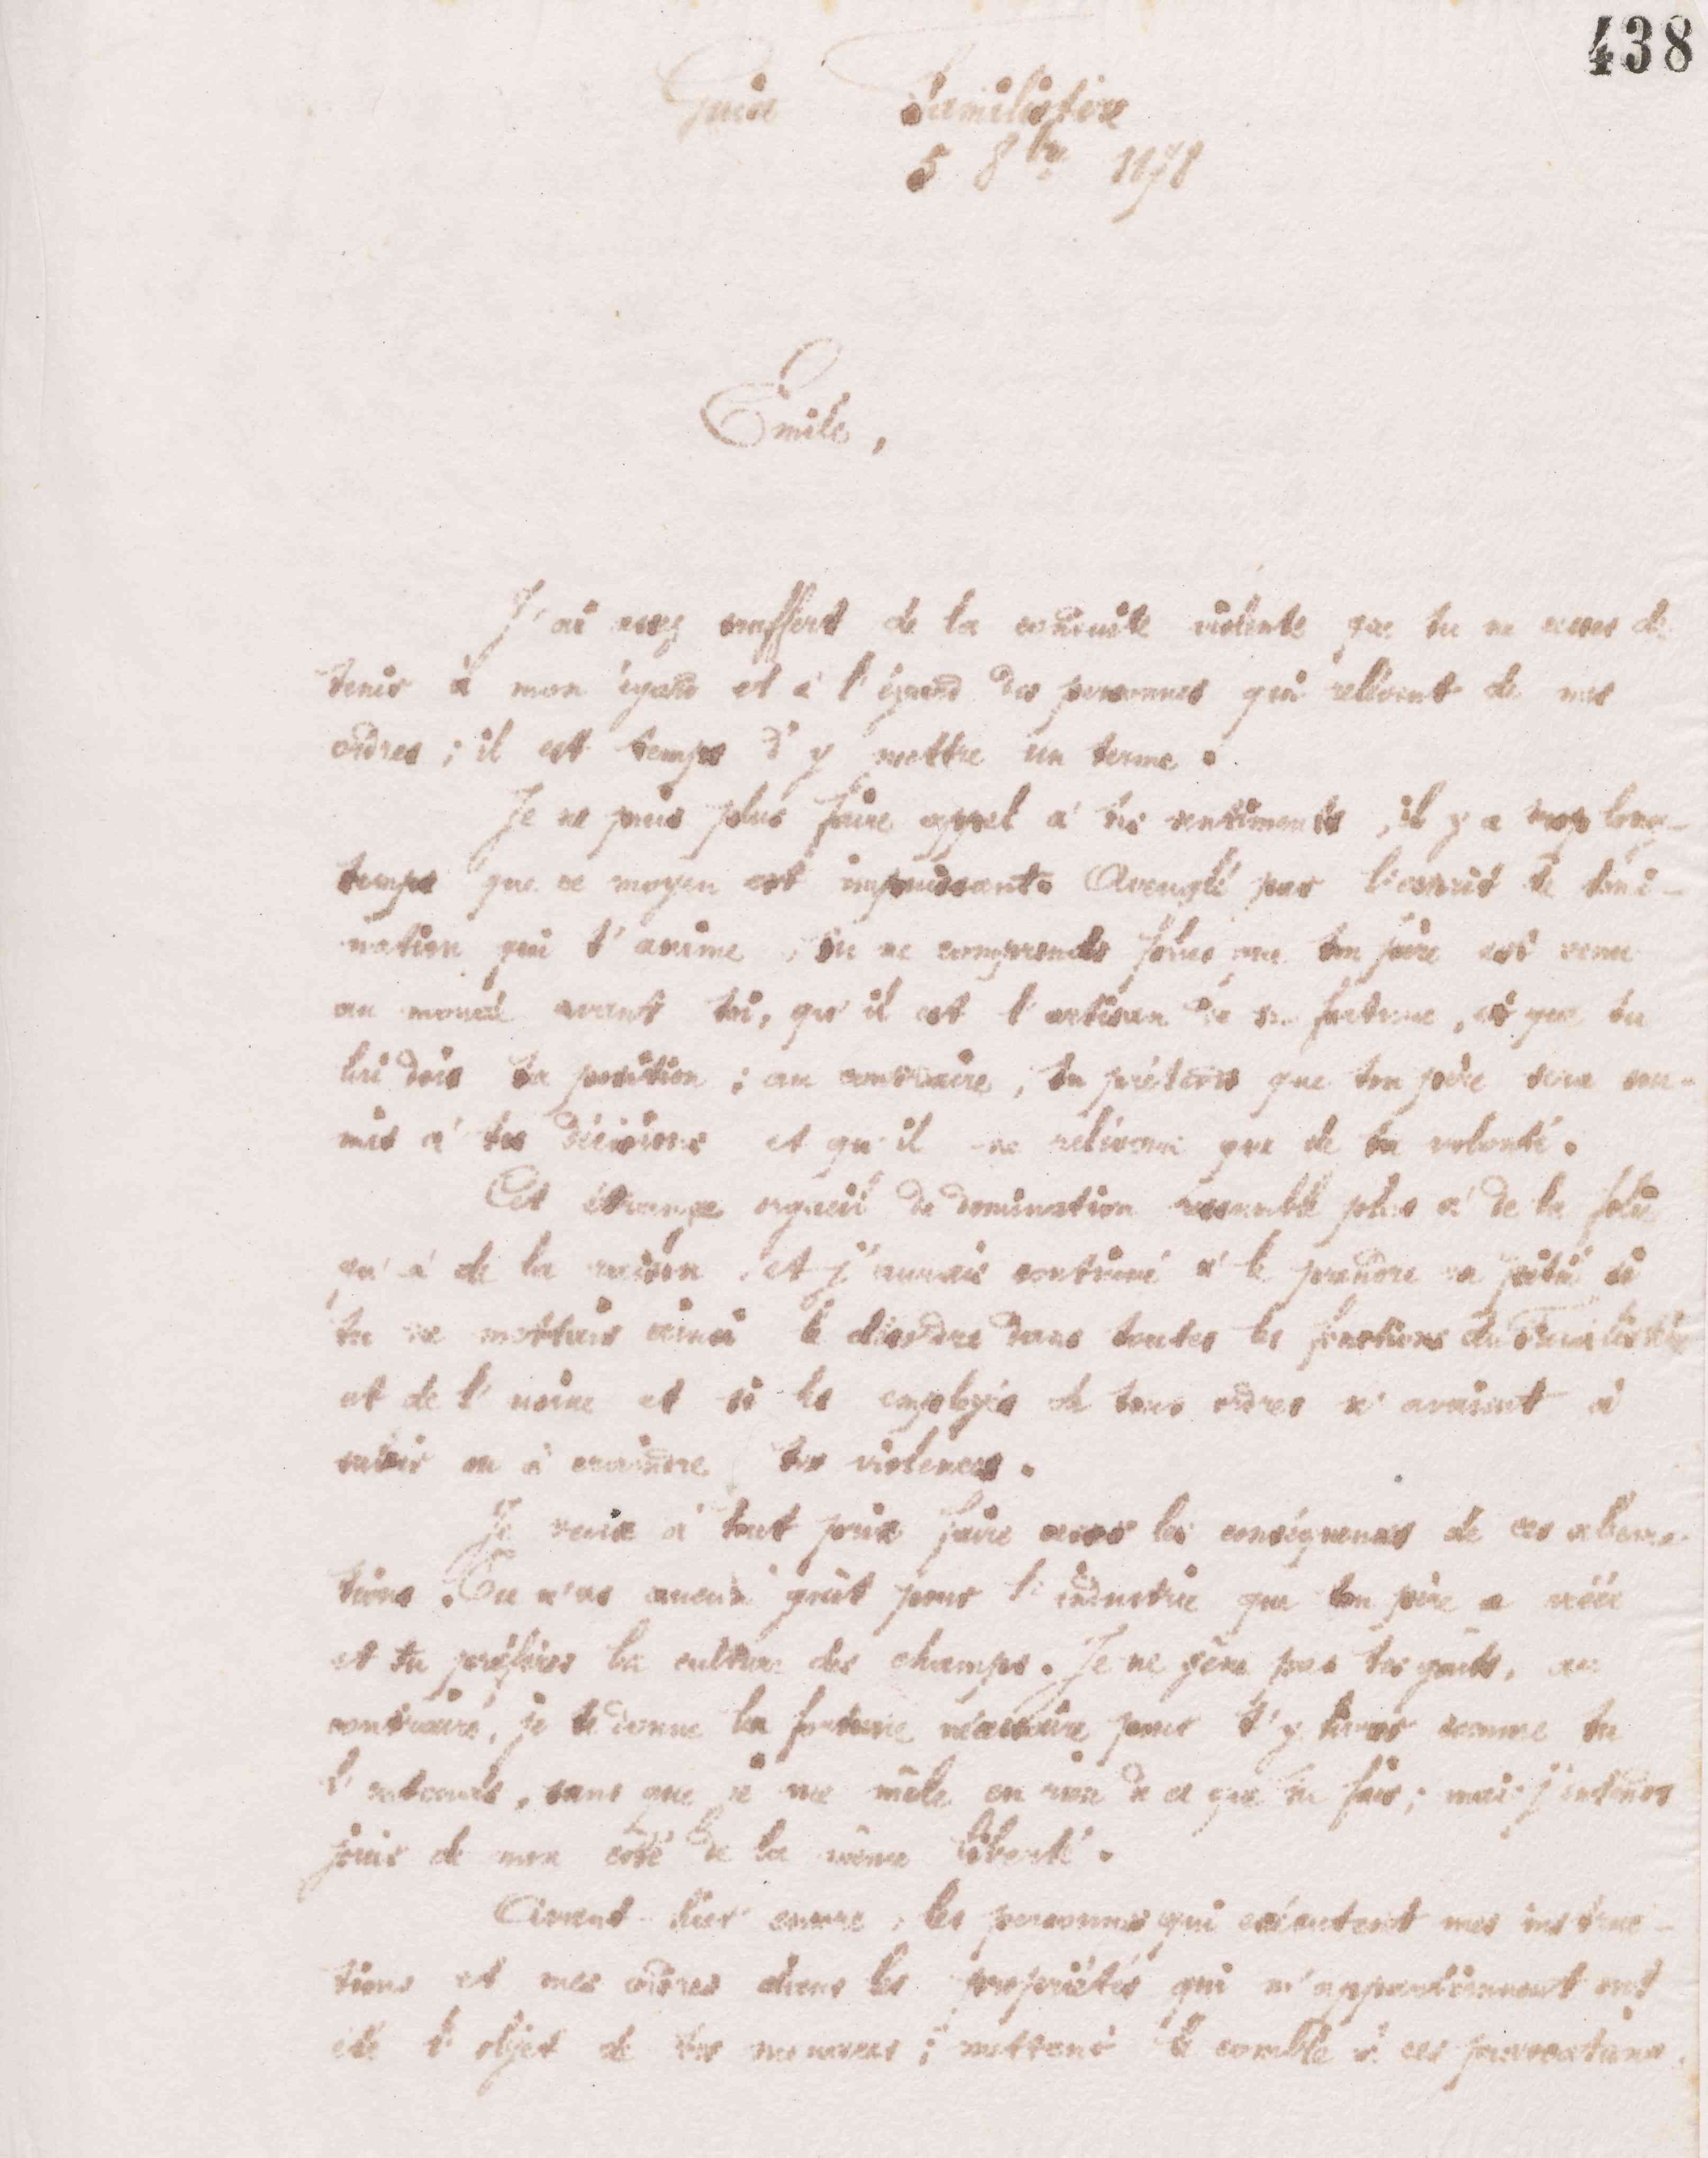 438
Guise Familistère
5 8bre 1878
Emile,
J'ai assez souffert de la conduite violente que tu ne cesses de
tenir à mon égard et à l'égard des personnes qui relèvent de mes
ordres ; il est temps d'y mettre un terme.
Je ne puis plus faire appel à tes sentiments, il y a trop long-
temps que ce moyen est impuissant. Aveuglé par l'esprit de domi-
nation qui t'anime, tu ne comprends plus que ton père est venu
au monde avant toi, qu'il est l'artisan de sa fortune, et que tu
lui dois ta position ; au contraire, tu prétends que ton père sera sou-
mis à tes décisions et qu'il ne relèvera que de ta volonté.
Cet étrange orgueil de domination ressemble plus à de la folie
qu'à de la raison, et j'aurais continué à le prendre en pitié si
tu ne mettais ainsi le désordre dans toutes les fonctions du Familistère
et de l'usine et si les employés de tous ordres n'avaient à
subir ou à craindre tes violences.
Je veux à tout prix faire cesser les conséquences de ces aberra-
tions. Tu n'as aucun goût pour l'industrie que ton père a créée
et tu préfères la culture des champs. Je ne gêne pas tes goûts, au
contraire, je te donne la fortune nécessaire pour t'y livrer comme tu
l'entends, sans que je me mêle en rien de ce que tu fais ; mais j'entends
jouir de mon côté de la même liberté.
Avant-hier encore, les personnes qui exécutent mes instruc-
tions et mes ordres dans les propriétés qui m'appartiennent ont
été l'objet de tes menaces ; mettant le comble à ces provocations,